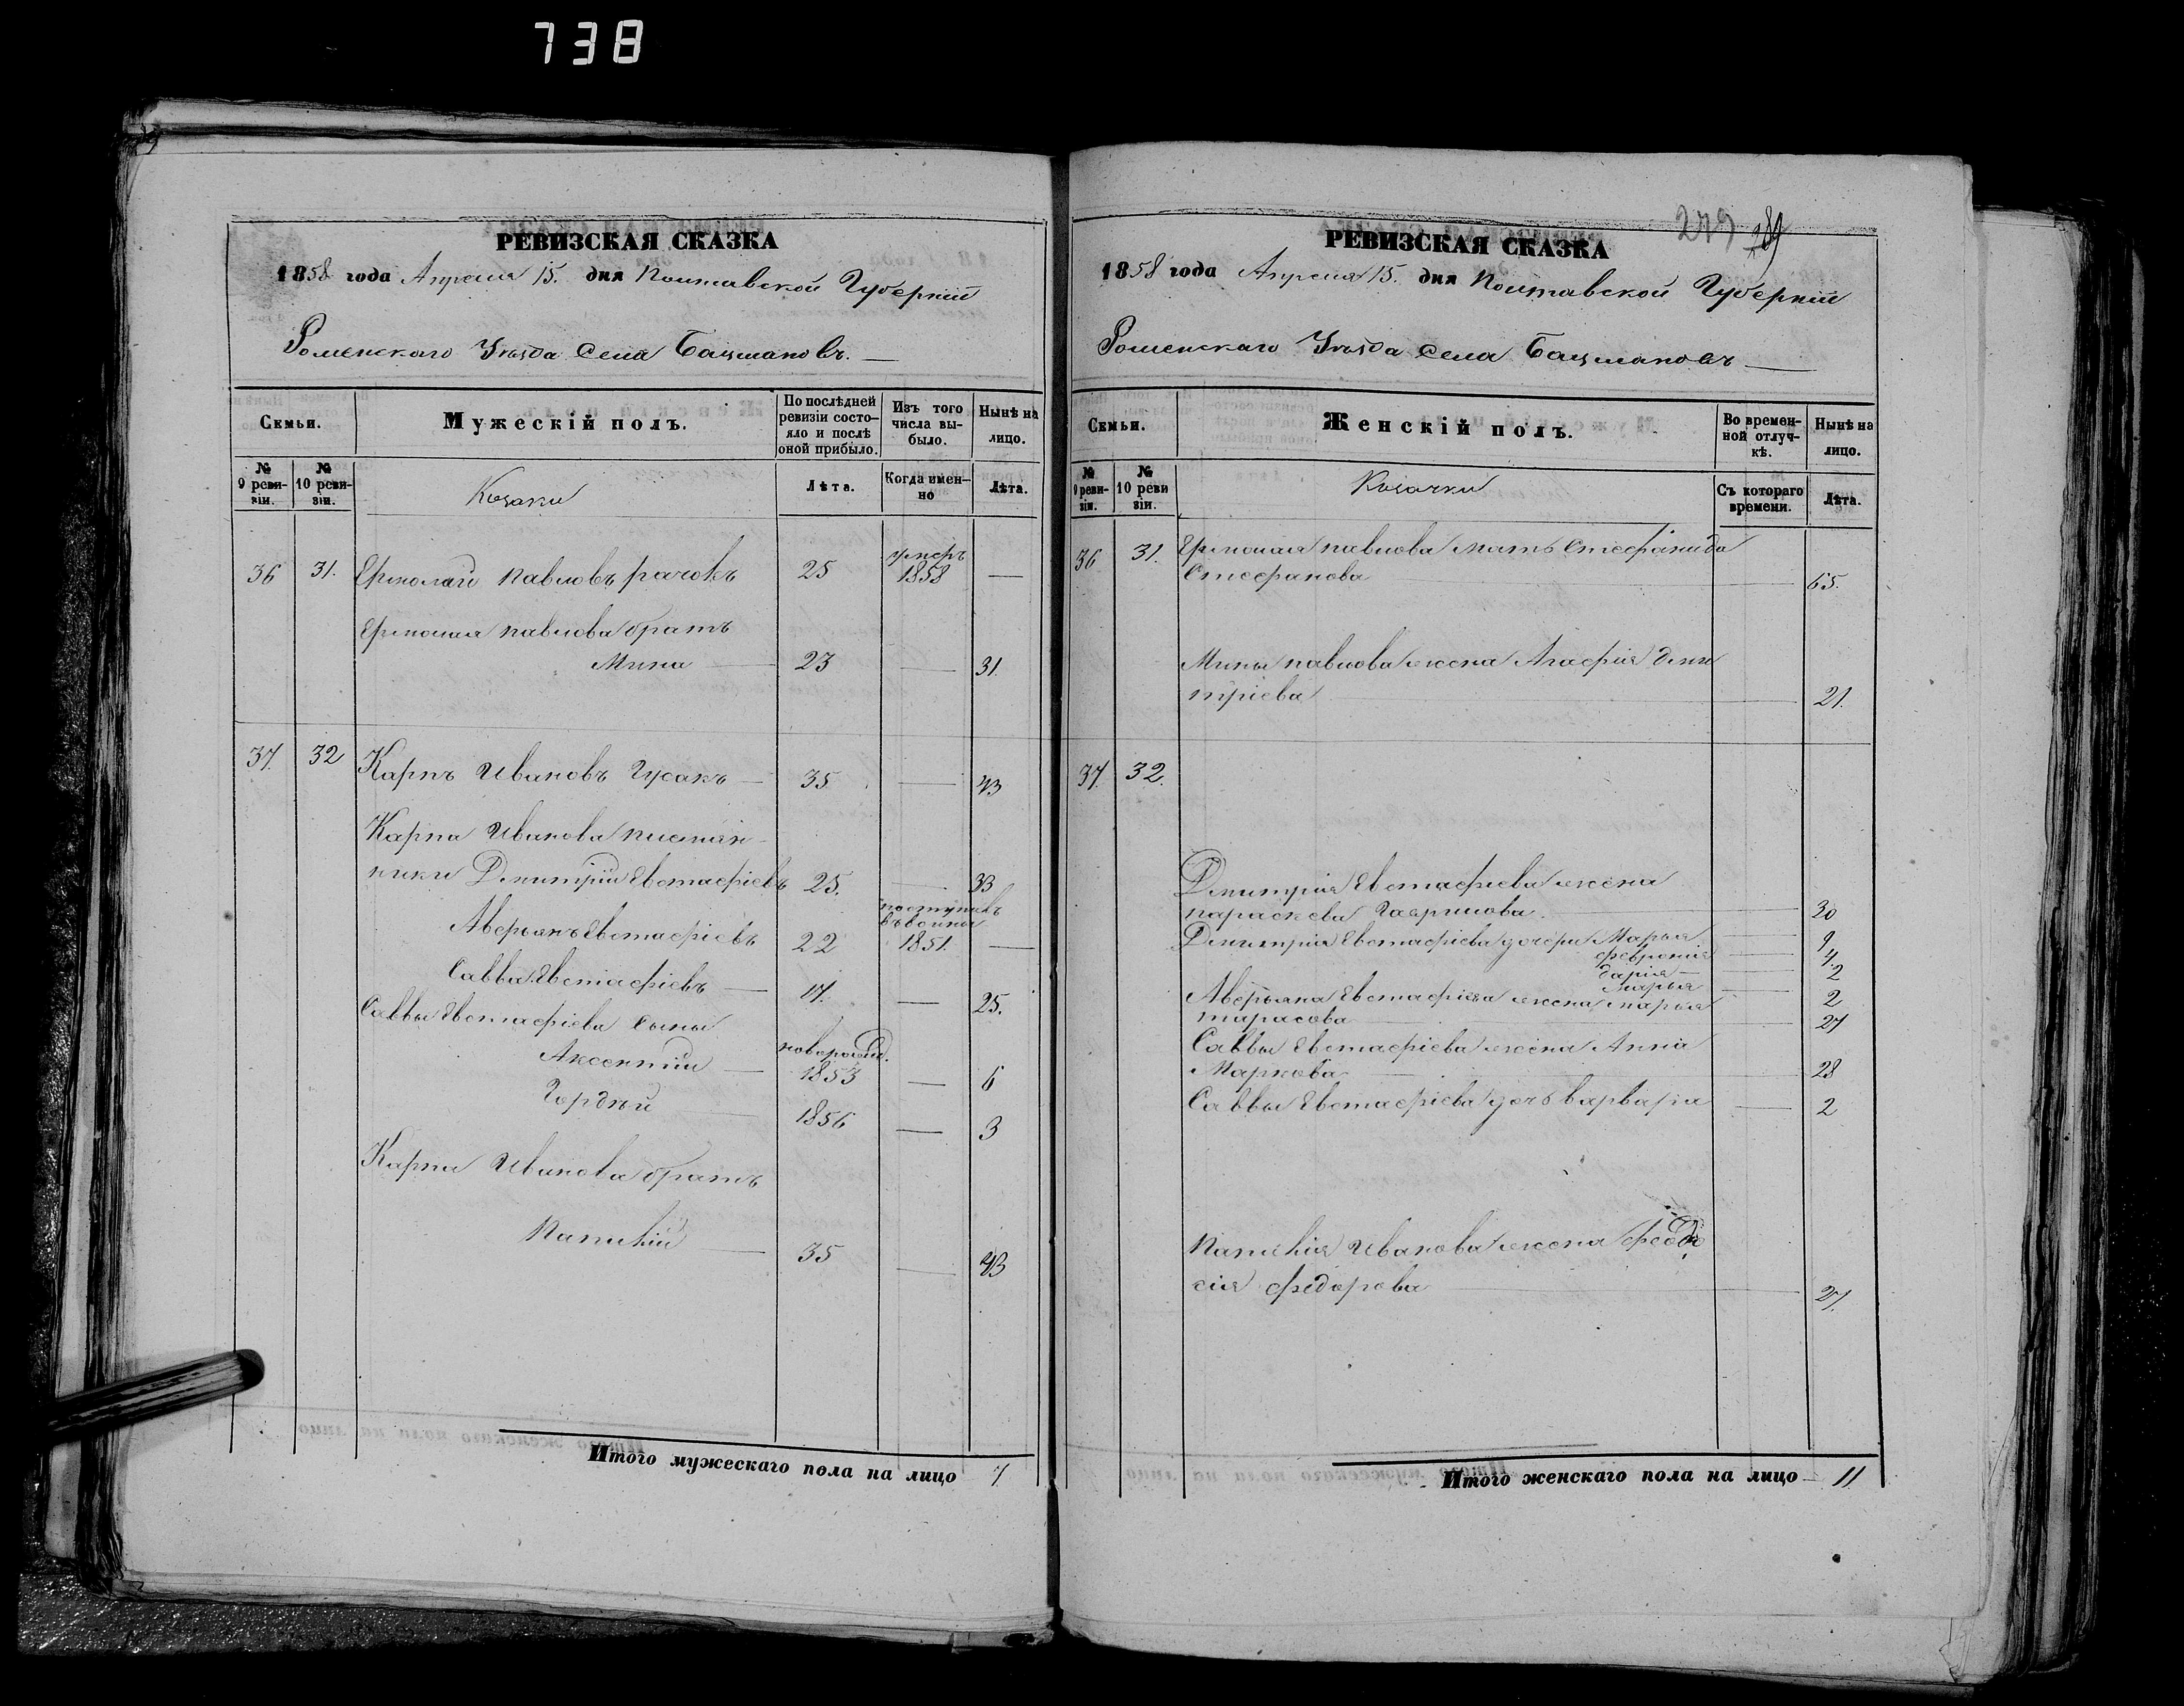 738
РЕВИЗСКАЯ СКАЗКА
1858 года Апреля 15. дня Полтавской Губерніи
Роменскаго Уѣзда Села Бацмановъ.
Семьи.
Мужескій полъ.
По послѣдней ревизіи состояло и послѣ оной прибыло.
Изъ того числа выбыло.
Нынѣ на лицо.
№ 9 ревизіи.
№ 10 ревизіи.
Козаки
Лѣта.
Когда именно
Лѣта.
36 31. Ермолай Павловъ Рачокъ 25 умеръ 1858 —
Ермолая Павлова братъ
Мина 23 — 31.
37. 32 Карпъ Ивановъ Гусакъ 35 — 43
Карпа Иванова племян-
ники Димитрій Евстафіевъ 25. — 33
Аверьянъ Евстафіевъ 22 поступилъ въ воины 1851 —
Савва Евстафіевъ — 17. — 25.
Саввы Евстафіева сыны
Аксентій — новорожд. 1853 — 6
Гордѣй 1856 — 3
Карпа Иванова братъ
35 — 43
Итого мужескаго пола на лицо 7
279 289
РЕВИЗСКАЯ СКАЗКА
1858 года Апреля 15. дня Полтавской Губерніи
Роменскаго Уѣзда Села Бацмановъ
Семьи.
Женскій полъ.
Во временной отлучкѣ.
Нынѣ на лицо.
№ 9 ревизіи.
№ 10 ревизіи.
Козачки
Съ котораго времени.
Лѣта.
36 31. Ермолая Павлова мать Стефанида
Стефанова 65.
Мины Павлова жена Агафія Дими
тріева 21.
37. 32.
Димитрія Евстафіева жена
Параскева Гаврилова. 30
Димитрія Евстафіева дочери Марья 9
Февронія 4.
Дарія 2
Марья 2
Аверьяна Евстафіева жена Марья
Тарасова 27
Саввы Евстафіева жена Анна
Маркова 28
Саввы Евстафіева дочь Варвара 2
Иванова жена Феодо
сія Федорова 27.
Итого женскаго пола на лицо — 11